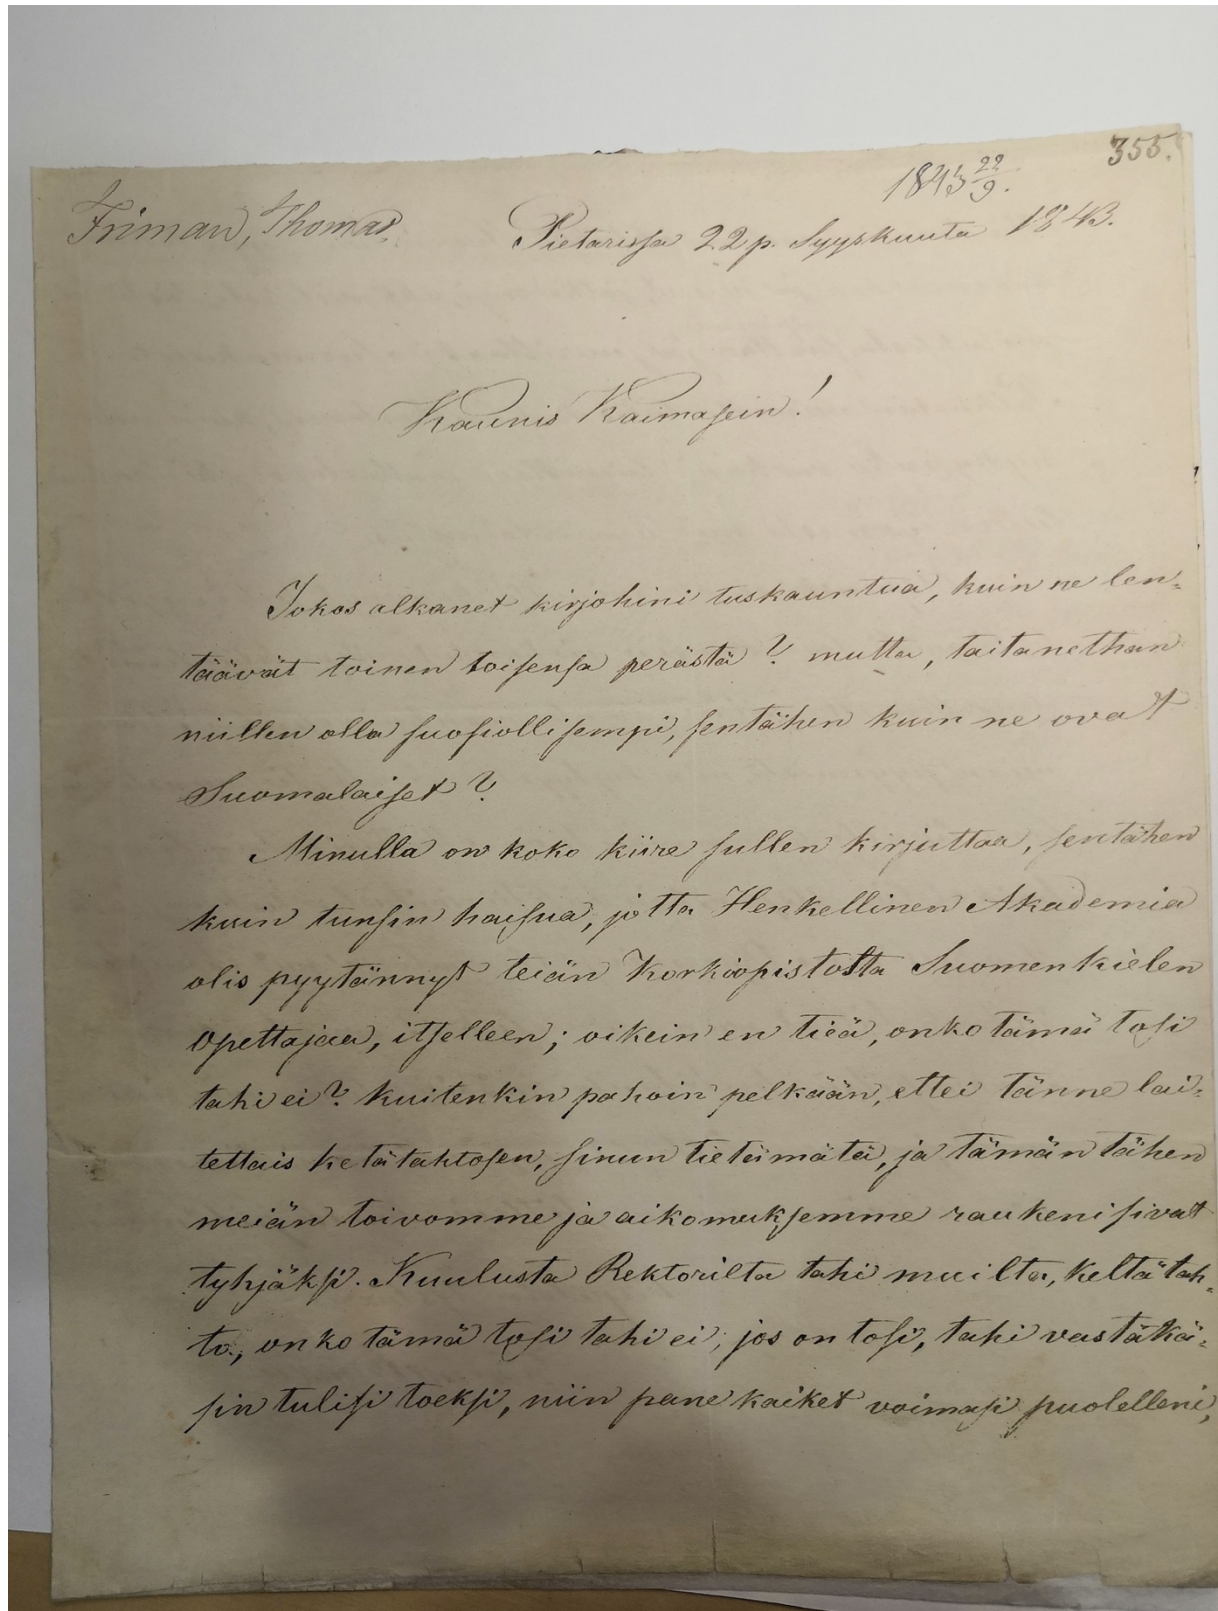 355.
1843 22/9.
Friman, Thomas.
Pietarissa 22 p. Syyskuuta 1843.
Kaunis Kaimasein!
Jokos alkanet kirjohini tuskauntua, kuin ne len-
täävät toinen toisensa perästä? mutta, taitanethan
niillen olla suosiollisempi, sentähen kuin ne ovat
Suomalaiset?
Minulla on koko kiire sullen kirjuttaa, sentähen
kuin tunsin haisua, jotta Henkellinen Akademia
olis pyytännyt teiän Korkiopistosta Suomenkielen
opettajaa, itselleen; oikein en tieä, onko tämä tosi
tahi ei? kuitenkin pahoin pelkään, ettei tänne lai-
tettais ketätahtosen, sinun tietämätä, ja tämän tähen
meiän toivomme ja aikomuksemme raukenisivat
tyhjäksi. Kuulusta Rektorilta tahi muilta, keltä tah-
to, onko tämä tosi tahi ei; jos on tosi, tahi vastäkä-
sin tulisi toeksi, niin pane kaiket voimasi puolelleni,